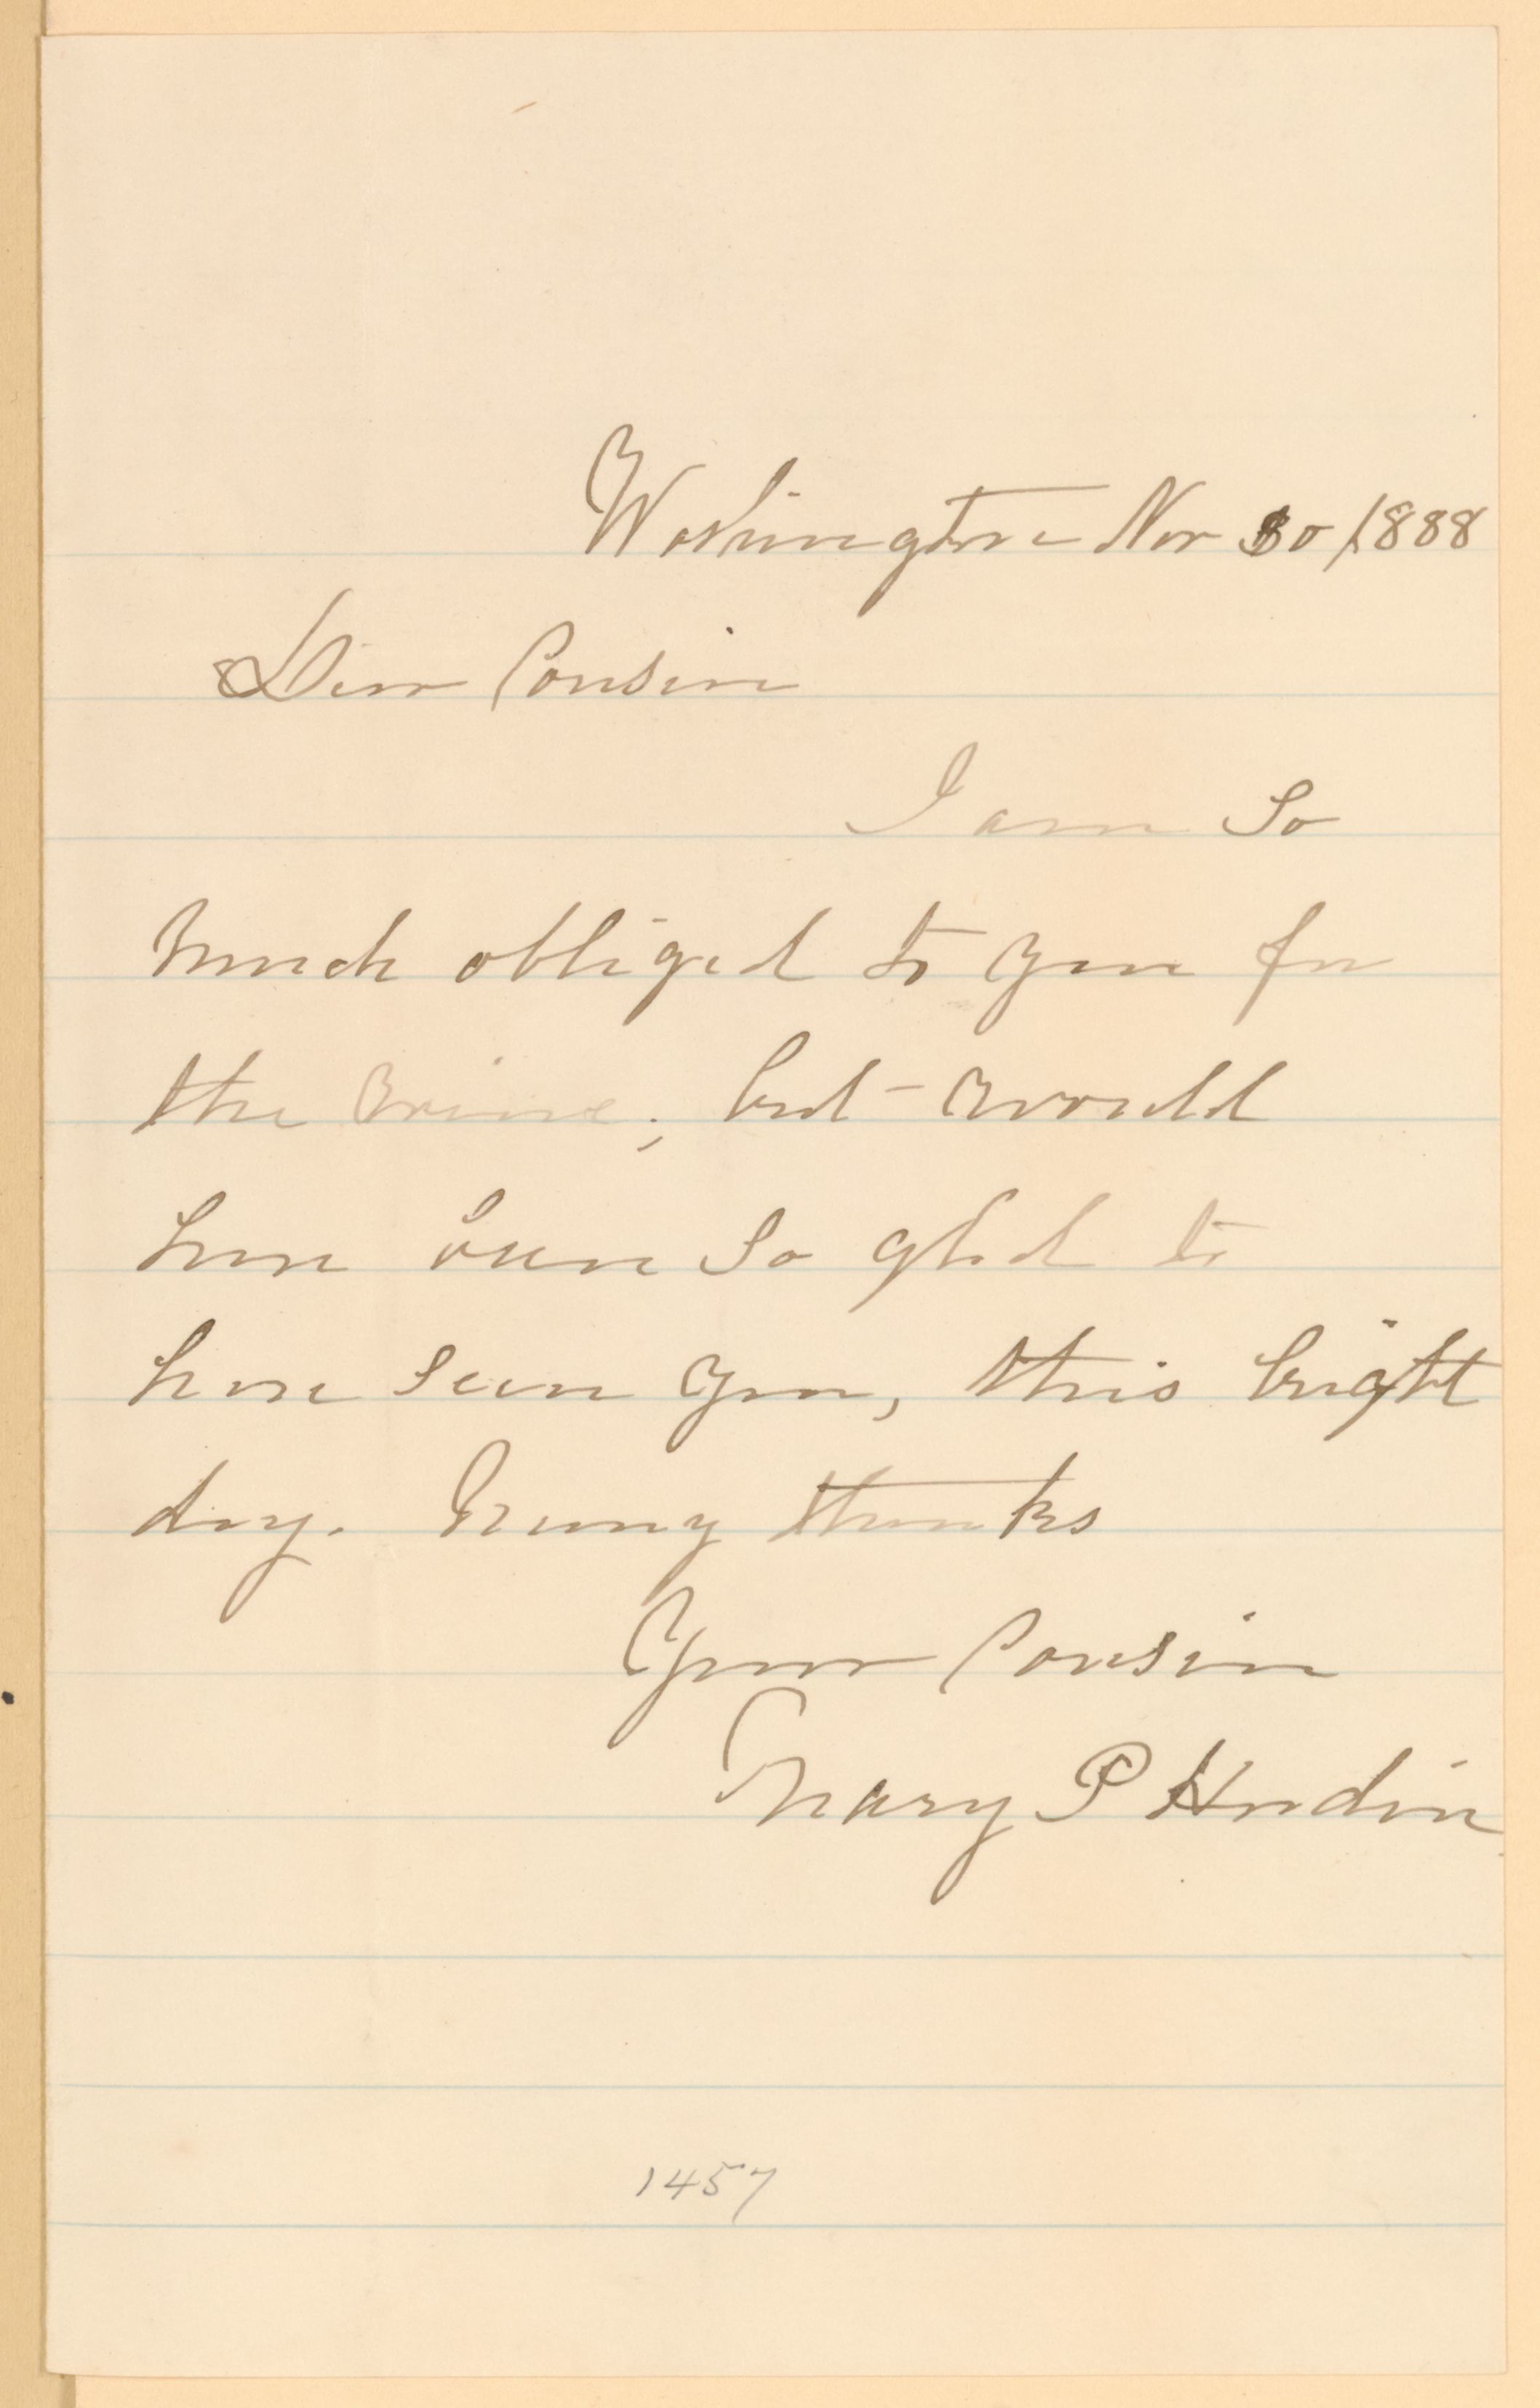 Washington Nov 30 / 1888
Dear Cousin
I am so
much obliged to you for
the wine; but would
have been so glad to
have seen you, this bright
day. Many thanks
Your Cousin
Mary P
1457